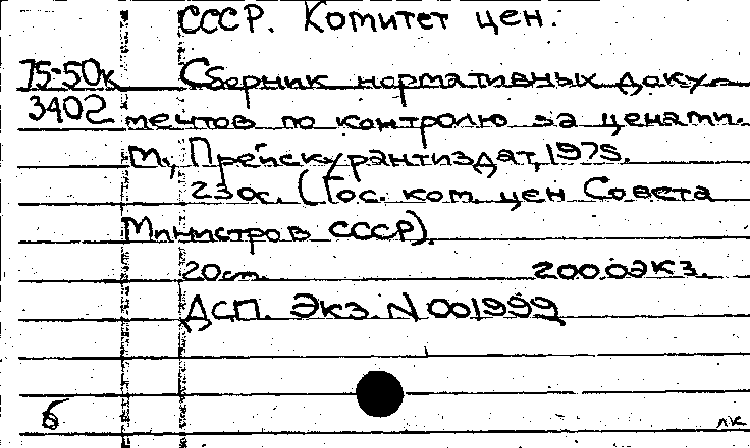 СССР. Комитет цен.
75-50к Сборник нормативных доку-
3402 ментов по контролю за ценами.
М., Прейскурантиздат, 1975.
230с. (Гос. ком. цен Совета
Министров СССР).
20см. 2000экз.
ДСП. Экз. N 001999
б
лк